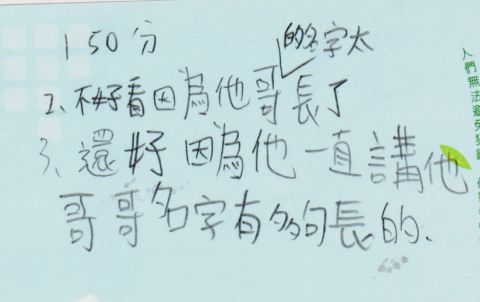 1 50分
的名字太
2、不好看因為他哥長了
3、還好因為他一直講他
哥哥名字有多夠長的、
人們無法避免